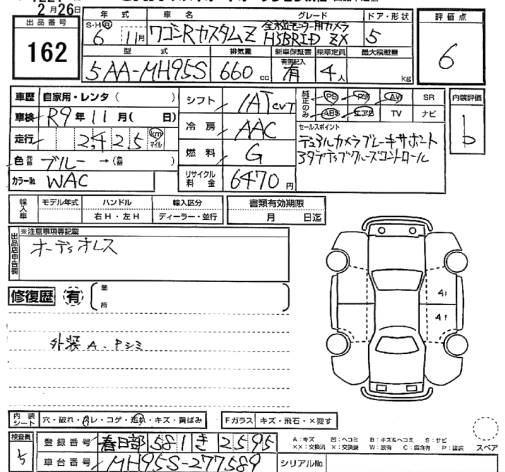 2月26日
出品番号
162
年式 車名 グレード ドア・形状
S・H・R 6年 11月 ワゴンRカスタムZ 全方位モニター用カメラ HYBRID ZX 5
評価点
6
型式 排気量 新車保証書 乗車定員 最大積載量
5AA-MH95S 660cc 有 4人 kg
車歴 自家用・レンタ( )
車検 R9年11月( 日)
走行 2,425 km マイル
色 ブルー→( )
カラーNo WAC
シフト IAT CVT
冷房 AAC
燃料 G
リサイクル料金 6470円
純正のみ PS PW AW SR
ABS エアB TV ナビ
内装評価
b
セールスポイント
デュアルカメラブレーキサポート
アダプティブクルーズコントロール
輸入車 モデル年式 ハンドル 輸入区分
右H・左H ディーラー・並行
書類有効期限
月 日迄
出品店申告欄
※注意事項等記載
オーディオレス
修復歴 有 箇所
外装A.Pシミ
A1
A1
内装シート 穴・破れ・スレ・コゲ・汚れ・キズ・黄ばみ
Fガラス キズ・飛石・×飛す
検査員
登録番号 春日部 581 き 2595
車台番号 MH95S-277589
シリアルNo
A:キズ U:ヘコミ B:キズ&ヘコミ S:サビ
スペア